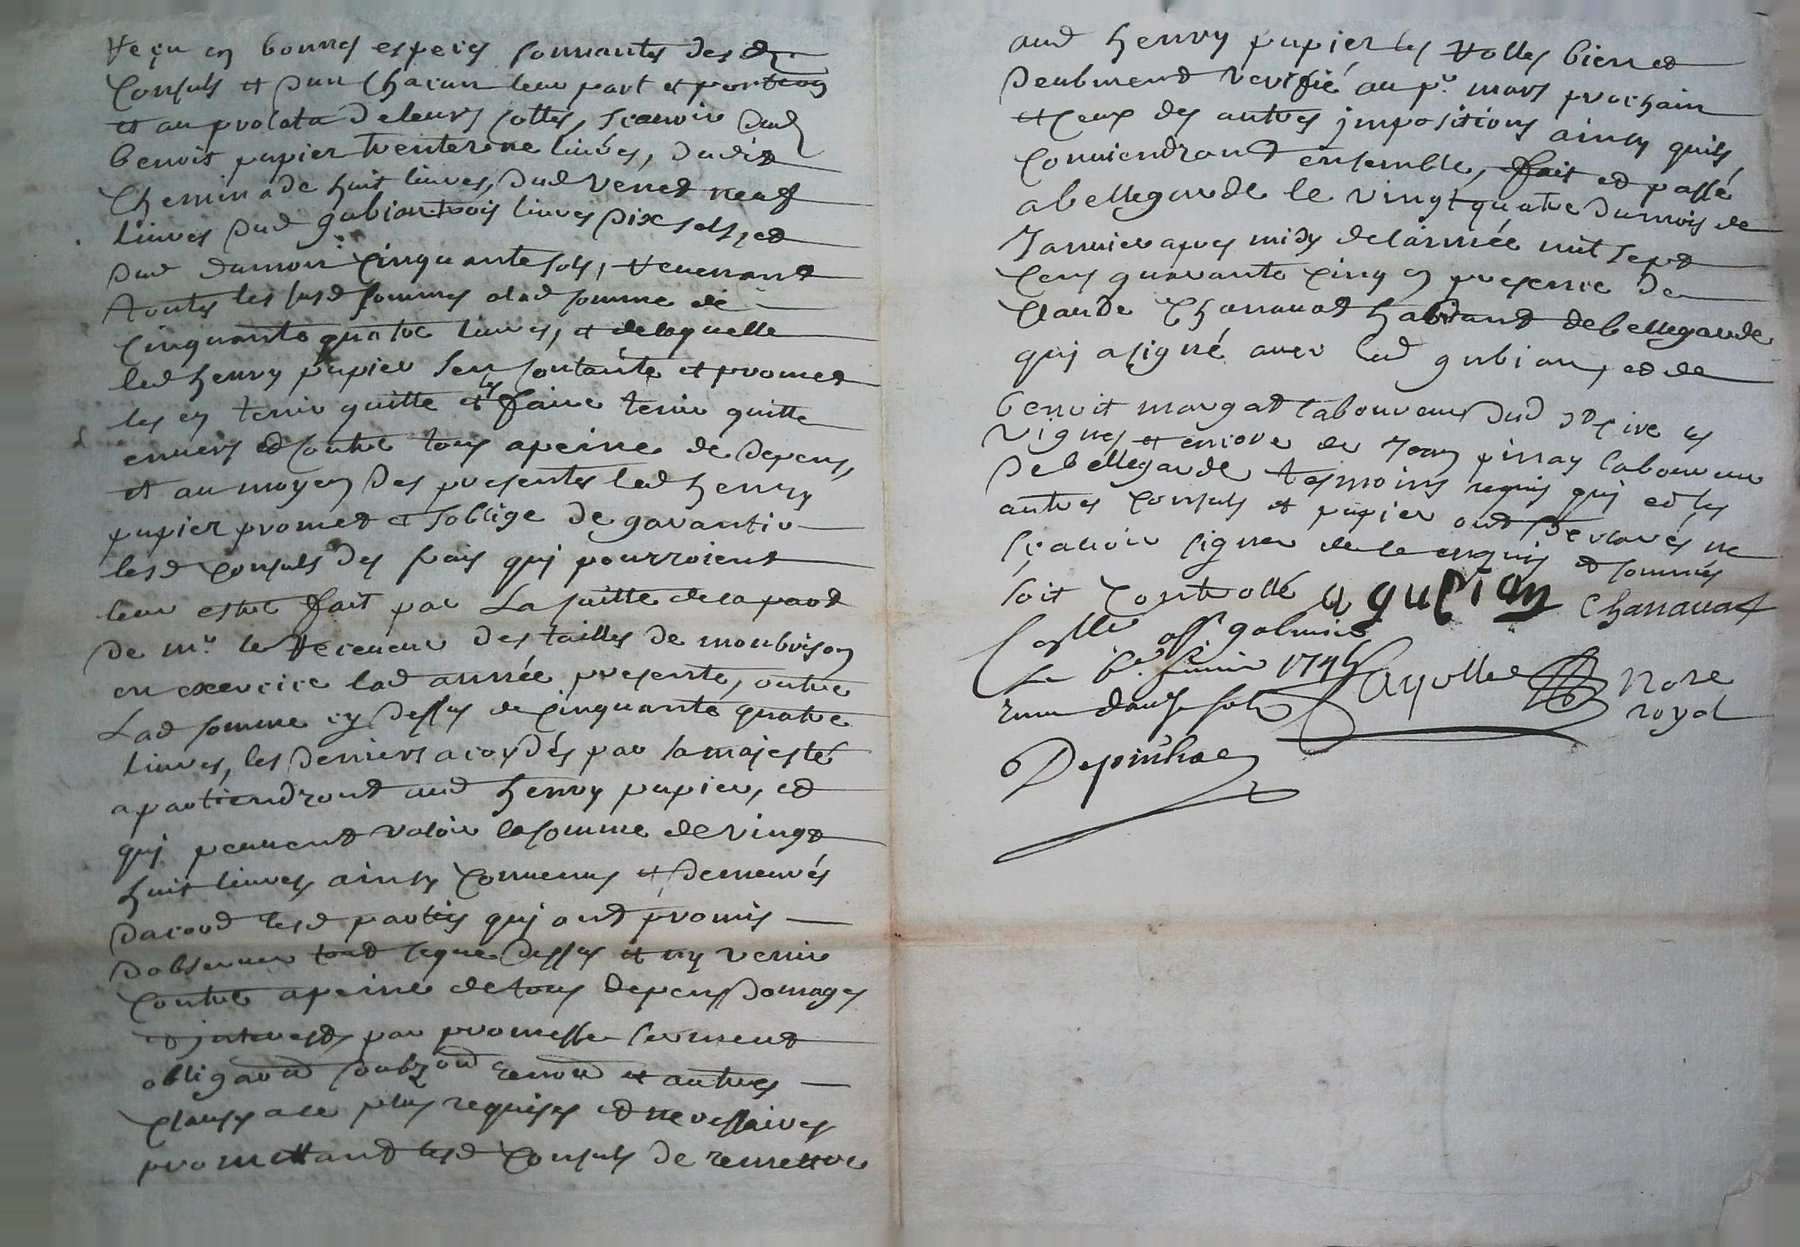 receu en bonnes especes sonnantes desd
consuls et dun chacun leur part et portion
et au prorata de leurs cottes, scavoir dud
benoit papier trente une livres, dudit
cheminade huit livres, dud venet neuf
livres dud gubian trois livres dix sols, et
dud dumon cinquante sols, revenant
toutes les susd sommes a lad somme de
cinquante quatre livres, et de laquelle
led henry papier sen contante et promet
les en tenir quitte et faire tenir quitte
envers et contre tous a peine de depens,
et au moyen des presentes led henry
papier promet et soblige de garantir
lesd consuls des frais qui pourroient
leur estre fait par la suitte de la part
de mr. le receveur des tailles de monbrison
en exercice lad année presente, outre
lad somme cy dessus de cinquante quatre
livres, les deniers acordés par sa majesté
apartiendront aud henry papier, et
qui peuvent valoir la somme de vingt
huit livres ainsy convenus et demeurés
dacord lesd parties qui ont promis
dobserver tout ce que dessus et ny venir
contre a peine de tous depens domages
et interests par promesse serment
obligaon soubzon renon et autres
clauses a ce plus requises et necessaires
promettant lesd consuls de remettre
aud henry papier les rolles bien et
deubment verifié au pr. mars prochain
et ceux des autres impositions ainsy quils
conviendront ensemble, fait et passé
a bellegarde le vingt quatre du mois de
janvier apres midy de lannée mil sept
cens quarante cinq en presence de
claude chanavat habitant de bellegarde
qui a signé avec led gubian, et de
benoit margat laboureur dud st cire les
vignes et encore de jean pinay laboureur
de bellegarde tesmoins requis qui et les
autres consuls et papier ont declarés ne
scavoir signer de ce enquis et sommés
soit controllé a gubian chanavat
Collé a st. galmier
le 6e. 1745
Reçu douze sols Fayolle nore
royal
Depinhac